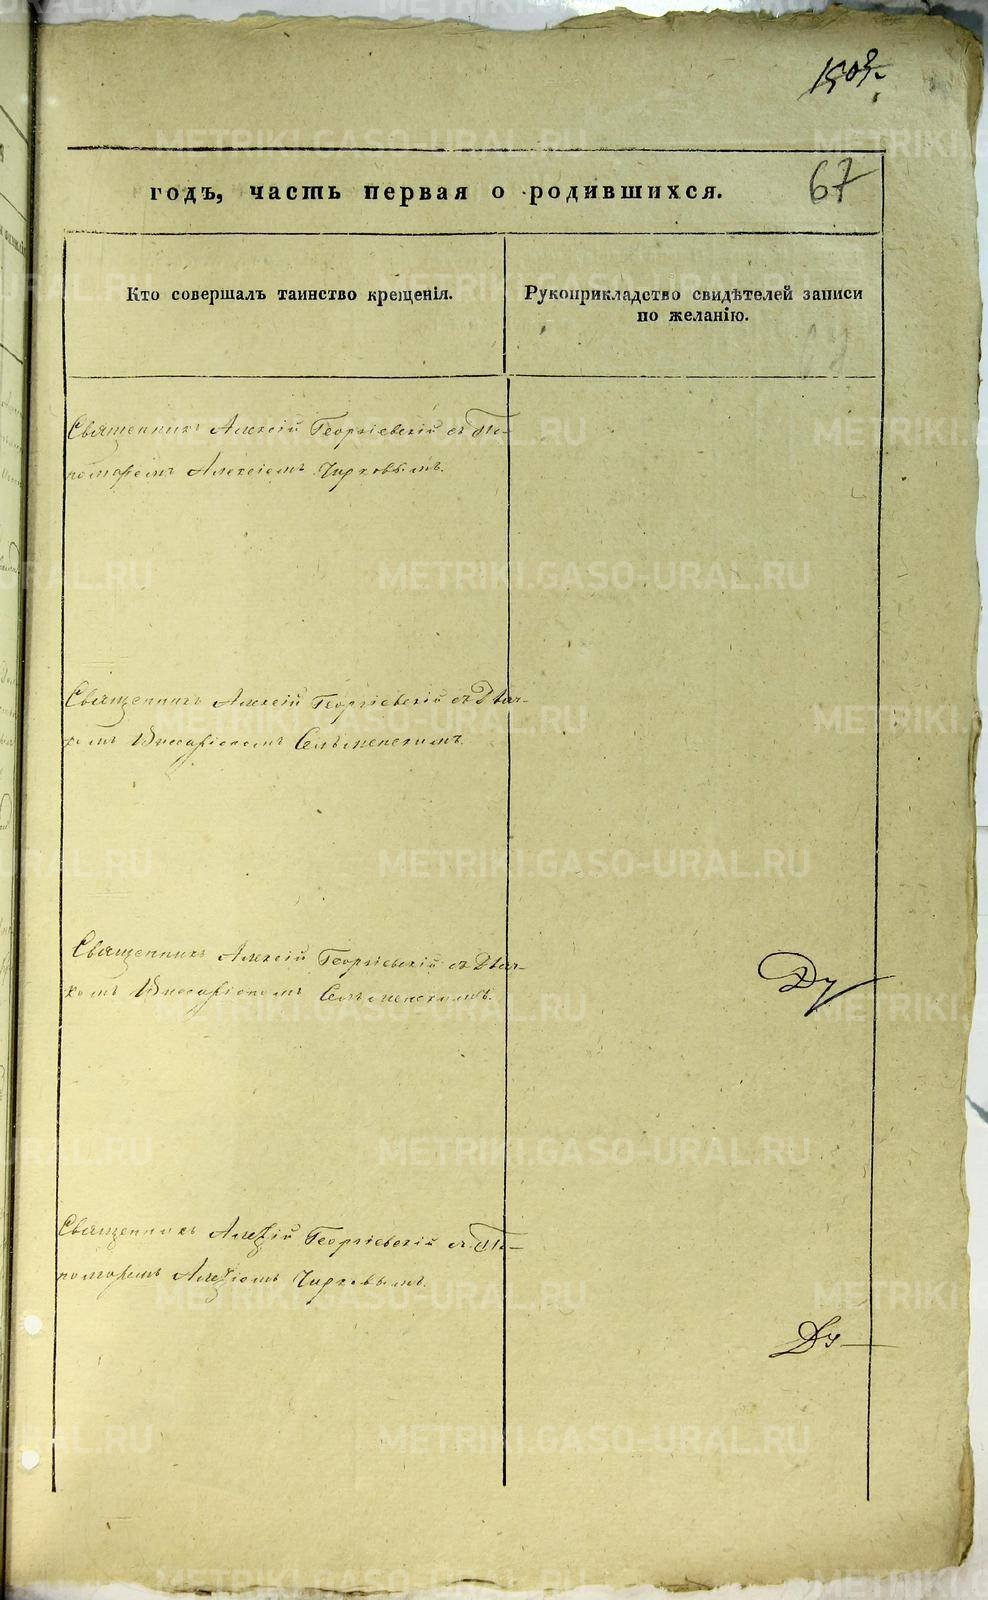 67
годъ, часть первая о родившихся.
Кто совершалъ таинство крещенія.
Рукоприкладство свидѣтелей записи
по желанію.
Священникъ Алексій Георгіевскій съ По-
номаремъ Алексіемъ Чирковымъ.
Священникъ Алексій Георгіевскій съ Дьяч-
комъ Виссаріономъ Сельменскимъ.
Священникъ Алексій Георгіевскій съ Дьяч-
комъ Виссаріономъ Сельменскимъ.
Священникъ Алексій Георгіевскій съ По-
номаремъ Алексіемъ Чирковымъ.
METRIKI.GASO-URAL.RU